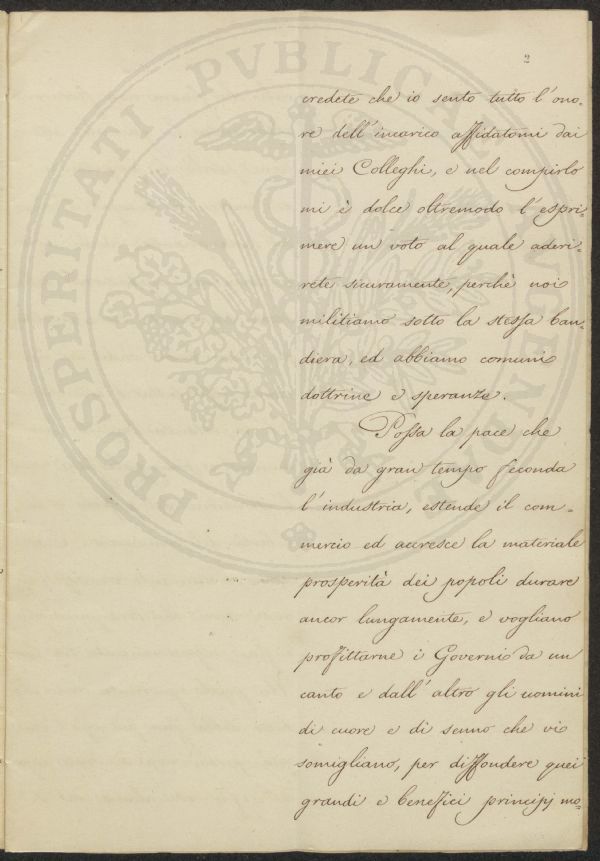 2
credete che io sento tutto l'ono-
re dell'incarico affidatomi dai
miei Colleghi, e nel compirlo
mi è dolce oltremodo l'espri-
mere un voto al quale aderi-
rete sicuramente, perchè noi
militiamo sotto la stessa ban-
diera, ed abbiamo comuni
dottrine e speranze.
Possa la pace che
già da gran tempo feconda
l'industria, estende il com-
mercio ed accresce la materiale
prosperità dei popoli durare
ancor lungamente, e vogliano
proffittarne i Governi da un
canto e dall'altro gli uomini
di cuore e di senno che vi
somigliano, per diffondere quei
grandi e benefici principj mo-
PROSPERITATI PVBLICAE AVGENDAE